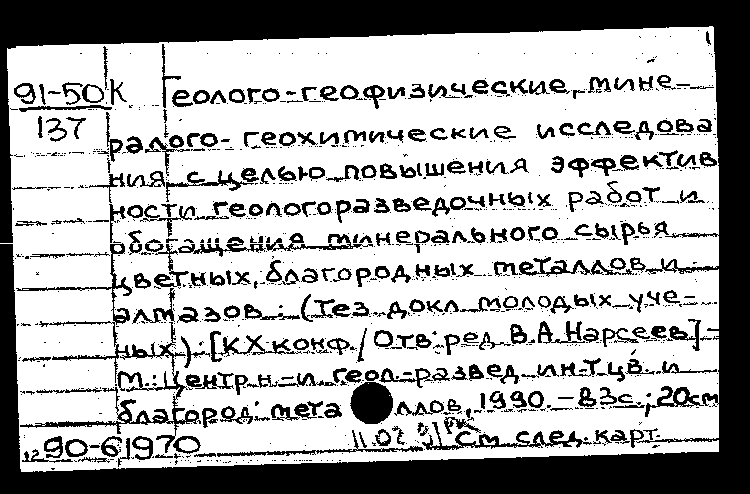 91-50К Геолого-геофизические, мине-
137
ралого-геохимические исследова
ния с целью повышения эффектив
ности геологоразведочных работ и
обогащения минерального сырья
цветных, благородных металлов и
алмазов: (Тез. докл молодых уче-
ных): [К X конф./Отв. ред В.А. Нарсеев]-
М.: Центр н.-и. геол.-развед ин-т цв и
благород. металлов, 1990. - 83с.; 20см
90-61970 11.02 91 См след. карт